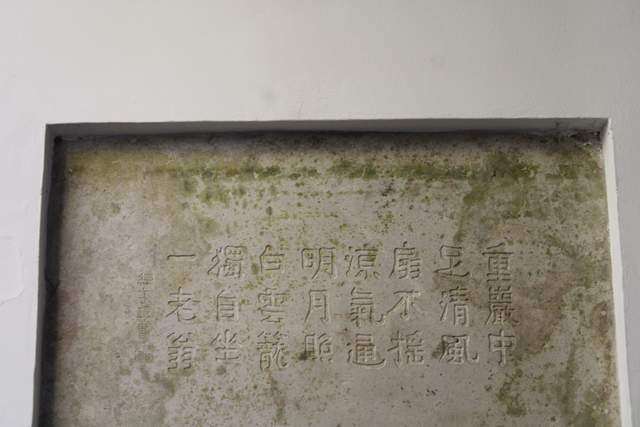 重巖中
足清風
扇不搖
涼氣通
明月照
白雲籠
獨自坐
一老翁